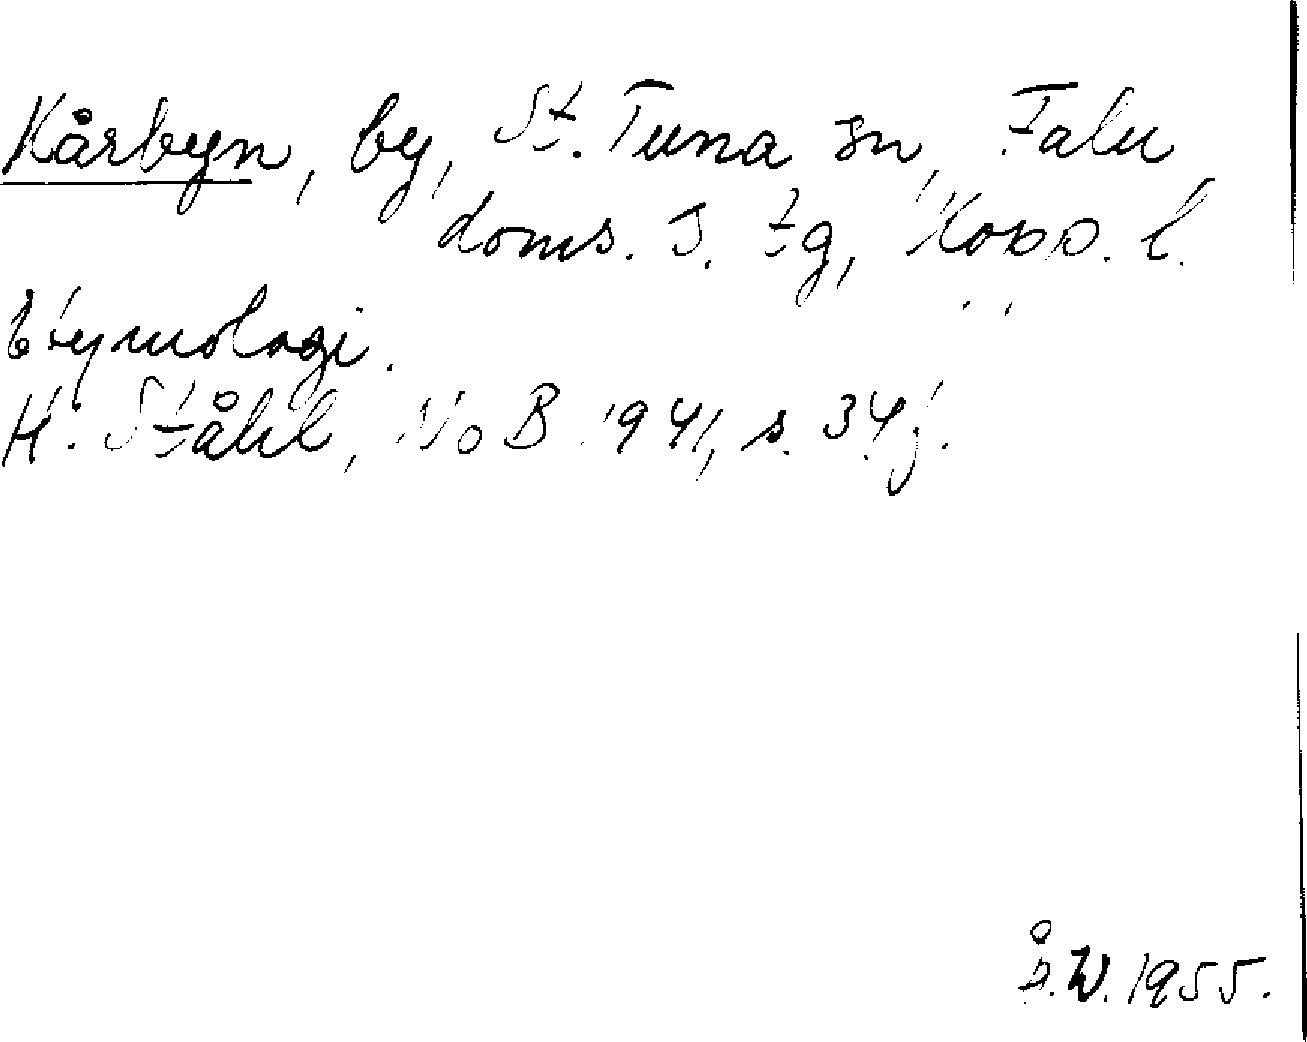 Kårbyn, by, St. Tuna sn, Falu
doms. s. tg, Kopp. l.
Etymologi.
H. Ståhl, NoB 1941, s. 34f.
Å.W. 1955.